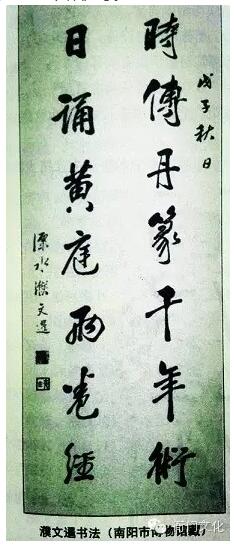 戊子秋日
時傳丹篆千年術
日誦黄庭兩卷經
溧水濮文暹
濮文暹书法（南阳市博物馆藏）